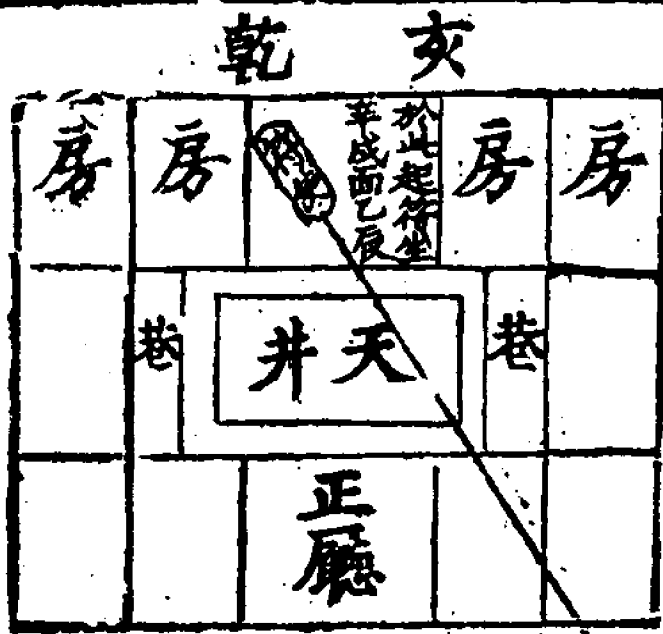 亥乾
房
房
於此起符坐
辛戌面乙辰
房
房
巷
天井
巷
正廳